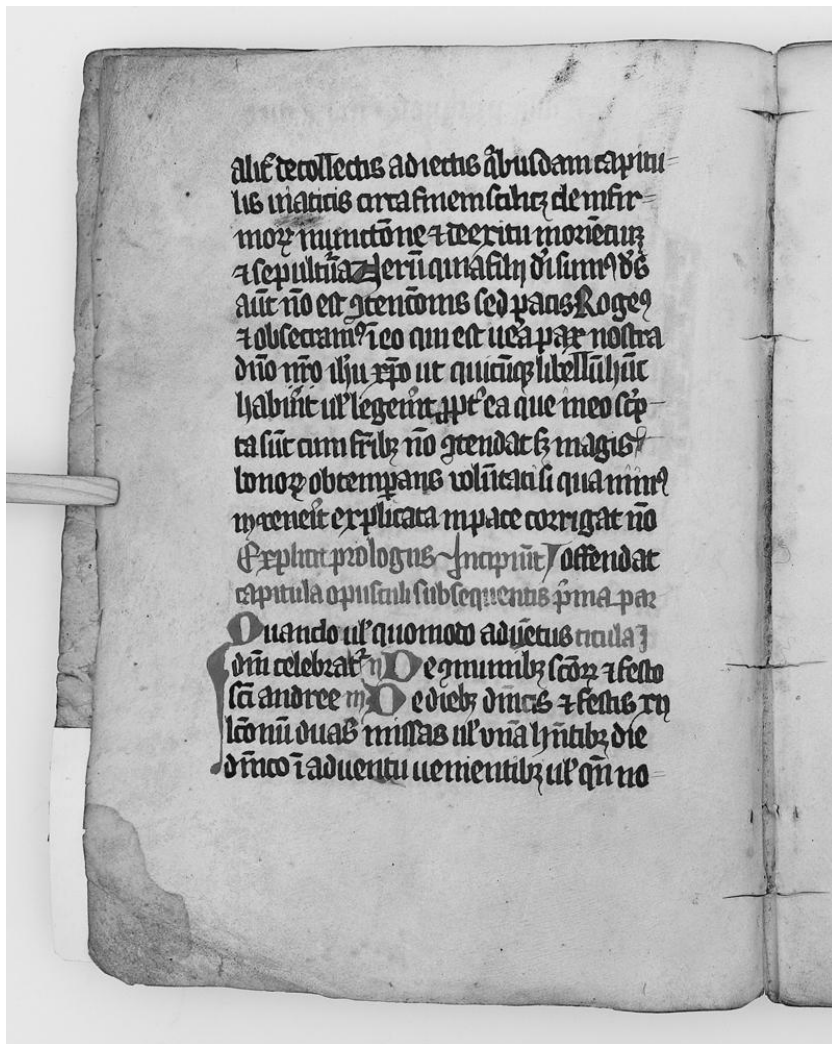 alit̃ decollectis adiectis q̃busdam capitu=
lis maticis circa finem scilicꝫ de infir=
moꝝ inunctõne ⁊ de exitu moriẽciuꝫ
⁊ sepultura Verũ quia filij di sumꝰ ds̃
aũt nõ est ꝯtencõnis sed pacis Rogeꝰ
⁊ obsecramꝰ ĩ eo qui est uera pax nostra
dño nr̃o ihu xp̃o ut quicũqꝫ libellũ hũc
habũit ul̃ legerĩt ꝓpt̃ ea que in eo scͥp
ta sũt cum fr̃ibꝫ nõ ꝯtendat sꝫ magis
bonoꝝ obtemꝑans volũtati si qua minꝰ
explicata in pace corrigat nõ
Explicit prologus Incipiũt offendat
capitula opusculi subsequentis pͥma par
Quando ul̃ quomodo aduẽtus titula j
dñi celebratᷣ ij De ꝯmunibꝫ sc̃oꝝ ⁊ festo
sc̃i andree iij De diebꝫ dñicis ⁊ festis xij
lc̃onũ duas missas ul̃ vnã hñtibꝫ die
dñico ĩ aduentu uenientibꝫ ul̃ qñ no=